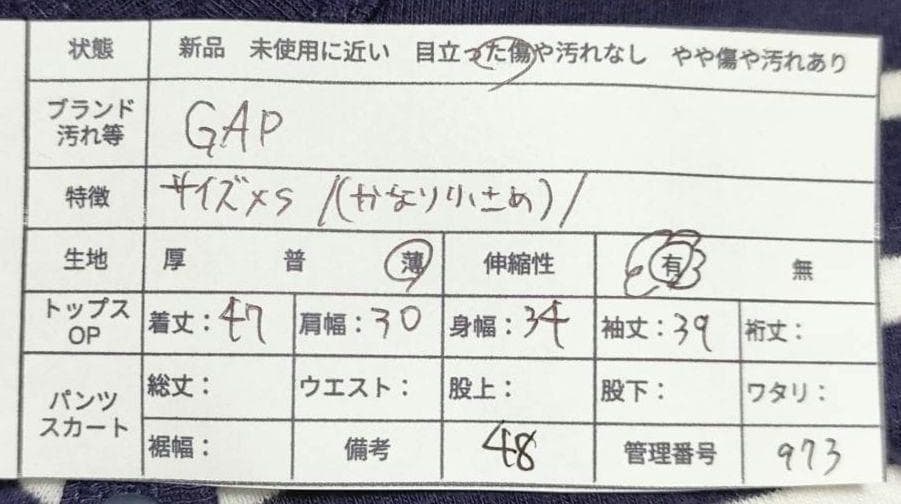 状態 新品 未使用に近い 目立った傷や汚れなし やや傷や汚れあり
ブランド
汚れ等 GAP
特徴 サイズXS /(かなり小さめ)/
生地 厚 普 薄 伸縮性 有 無
トップス
OP 着丈：47 肩幅：30 身幅：34 袖丈：39 裄丈：
パンツ
スカート 総丈： ウエスト： 股上： 股下： ワタリ：
裾幅： 備考 48 管理番号 973